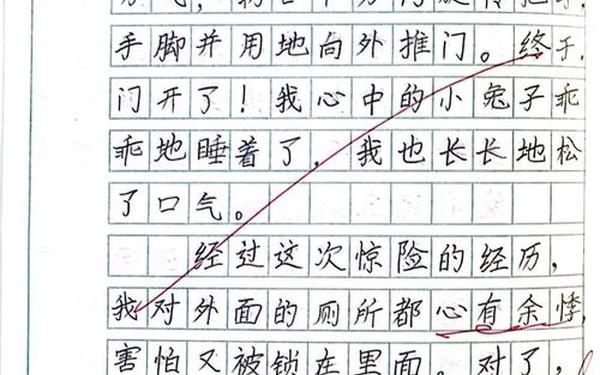 手脚并用地向外推门。终于,
门开了！我心中的小兔子乖
乖地睡着了，我也长长地松
了口气。
经过这次惊险的经历，
我对外面的厕所都心有余悸，
害怕又被锁在里面。对了，